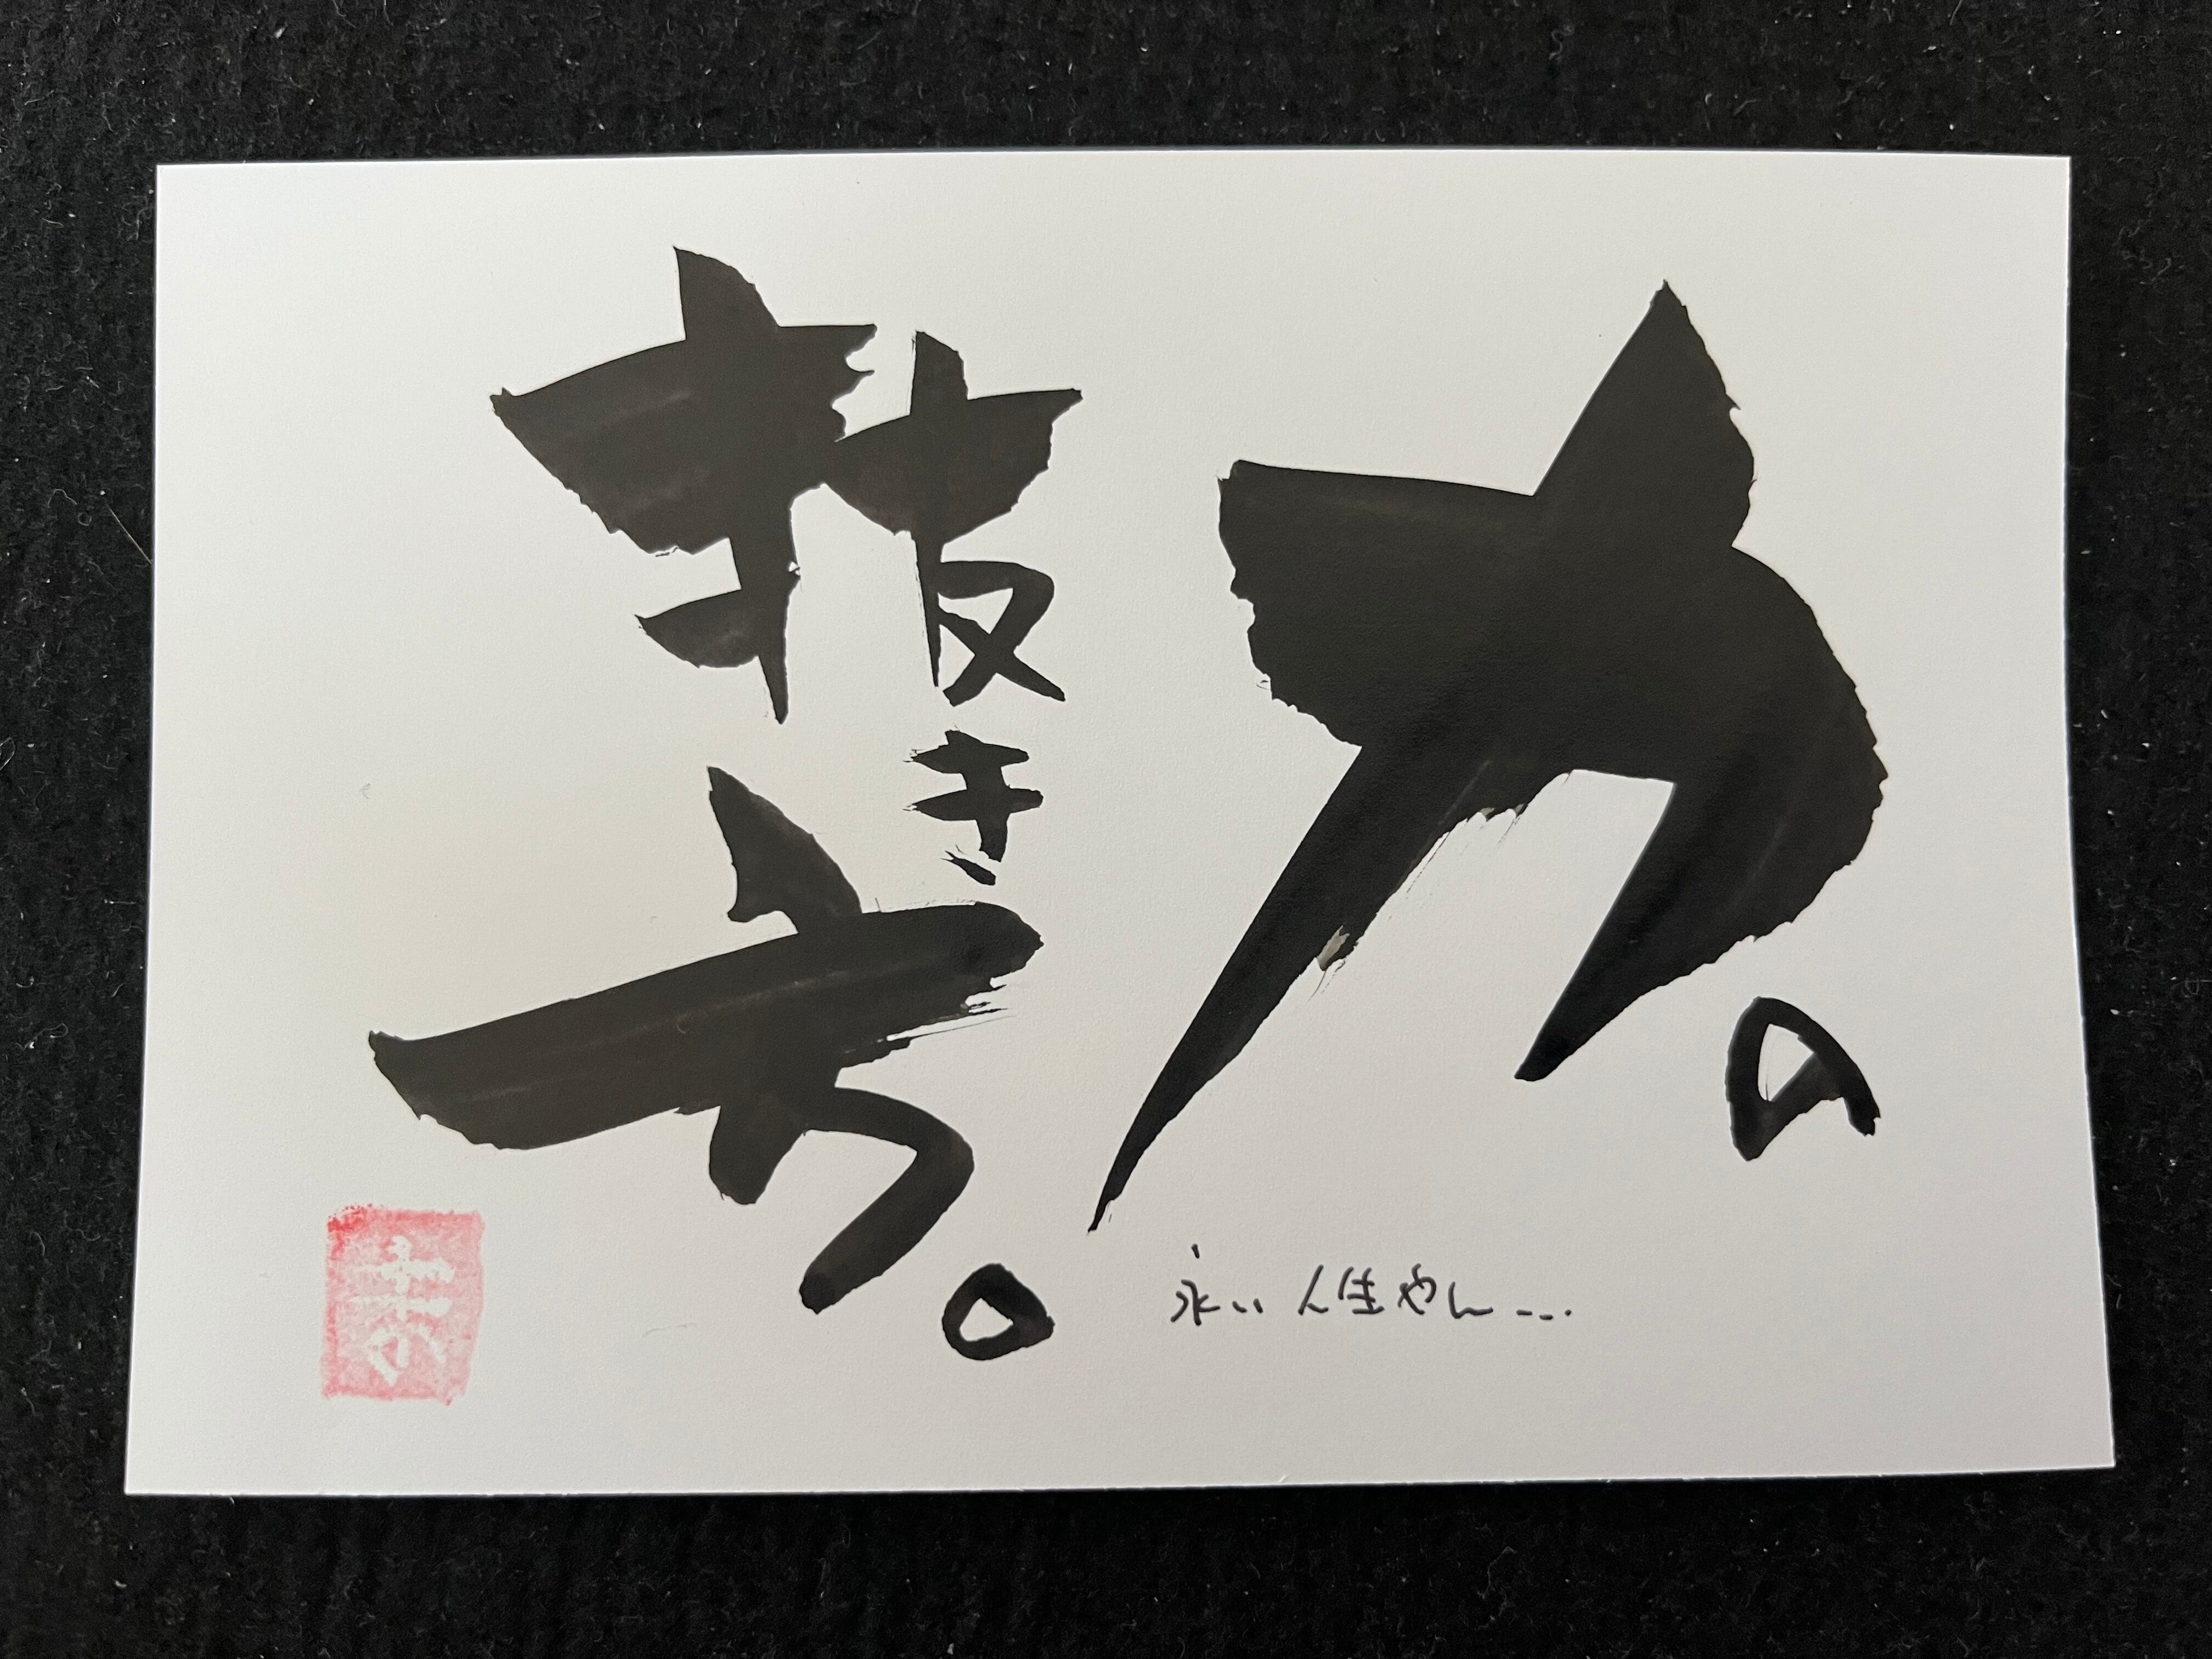 力の
抜き方。
永い人生やん…